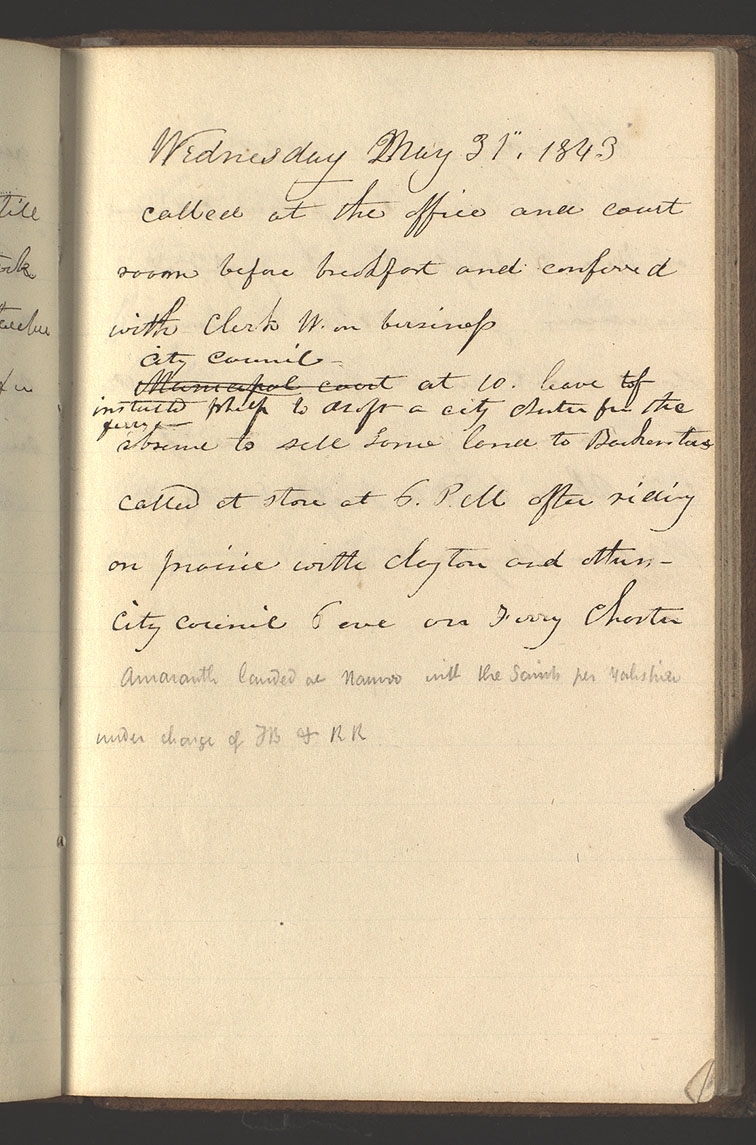 Wednesday May 31", 1843
called at the office and court
room before breakfast and conferred
with Clerk W. on business
city council—
Municipal court at 10. leave of
instructed phelps to draft a city charter for the
ferry—
absence to sell some land to Backenstos
called at store at 6. P.M after riding
on prairie with clayton and others—
City council 6 eve on Ferry Charter
Amaranth landed at Nauvoo with the Saints per Yorkshire
under charge of TB & RR
till